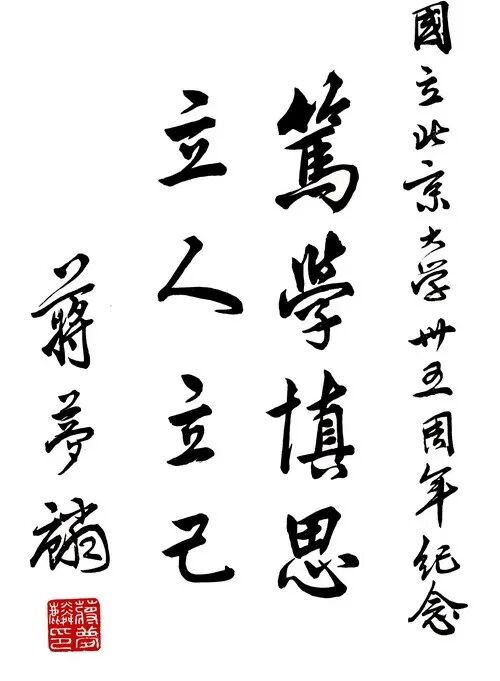 國立北京大学卅五周年紀念
篤學慎思
立人立己
蔣夢麟
蔣夢麟印